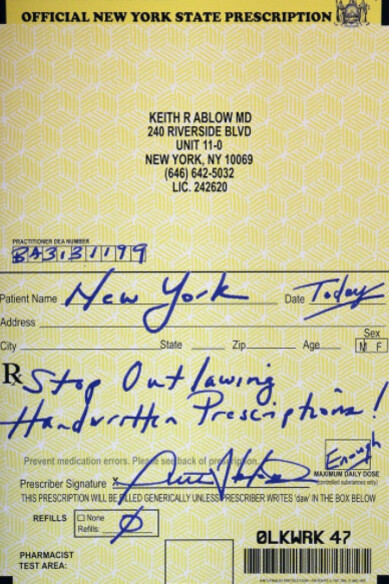 OFFICIAL NEW YORK STATE PRESCRIPTION
KEITH R ABLOW MD
240 RIVERSIDE BLVD
UNIT 11-0
NEW YORK, NY 10069
(646) 642-5032
LIC. 242620
PRACTITIONER DEA NUMBER
BA3131199
Patient Name New York Date Today
Address
Sex
City State Zip Age M F
Rx Stop Outlawing
Handwritten Prescriptions!
Prevent medication errors. Please see back of prescription.
Enough
MAXIMUM DAILY DOSE
(controlled substances only)
Prescriber Signature X
THIS PRESCRIPTION WILL BE FILLED GENERICALLY UNLESS PRESCRIBER WRITES 'daw' IN THE BOX BELOW
REFILLS None
Refills: Ø
0LKWRK 47
PHARMACIST
TEST AREA: